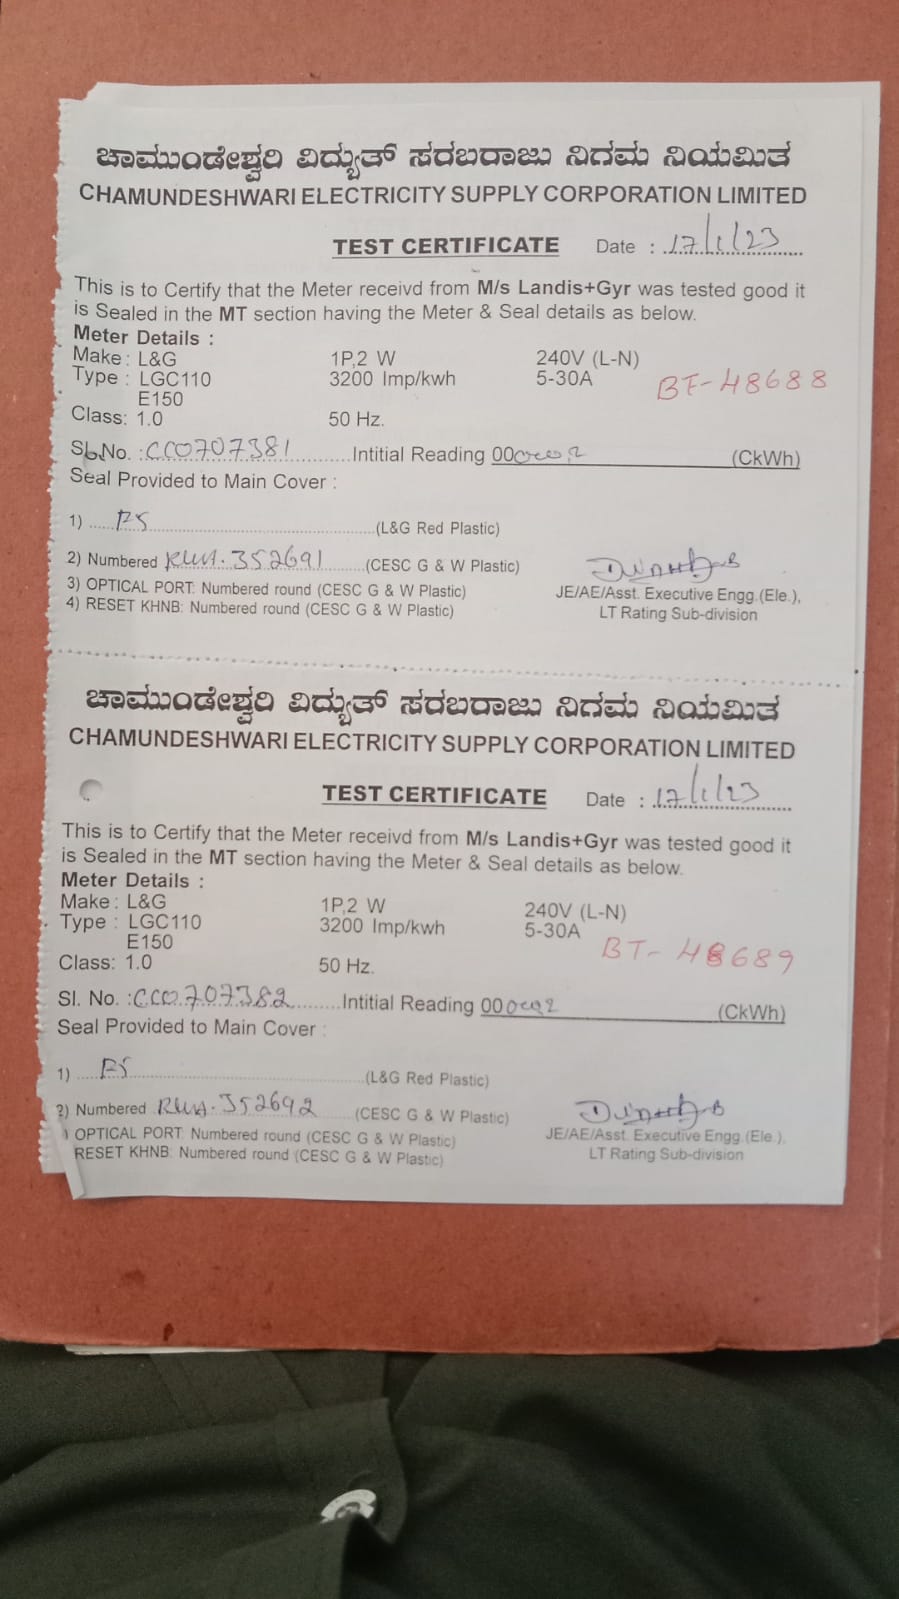 ಚಾಮುಂಡೇಶ್ವರಿ ವಿದ್ಯುತ್ ಸರಬರಾಜು ನಿಗಮ ನಿಯಮಿತ
CHAMUNDESHWARI ELECTRICITY SUPPLY CORPORATION LIMITED
TEST CERTIFICATE Date : 17/1/23
This is to Certify that the Meter receivd from M/s Landis+Gyr was tested good it
is Sealed in the MT section having the Meter & Seal details as below.
Meter Details :
Make : L&G 1P,2 W 240V (L-N)
Type : LGC110 3200 Imp/kwh 5-30A BT-48688
E150
Class: 1.0 50 Hz.
Sl.No. : CC0707381 Intitial Reading 00000.2 (CkWh)
Seal Provided to Main Cover :
1) PS (L&G Red Plastic)
2) Numbered 352691 (CESC G & W Plastic)
3) OPTICAL PORT: Numbered round (CESC G & W Plastic)
JE/AE/Asst. Executive Engg.(Ele.),
4) RESET KHNB: Numbered round (CESC G & W Plastic)
LT Rating Sub-division
ಚಾಮುಂಡೇಶ್ವರಿ ವಿದ್ಯುತ್ ಸರಬರಾಜು ನಿಗಮ ನಿಯಮಿತ
CHAMUNDESHWARI ELECTRICITY SUPPLY CORPORATION LIMITED
TEST CERTIFICATE Date : 17/1/23
This is to Certify that the Meter receivd from M/s Landis+Gyr was tested good it
is Sealed in the MT section having the Meter & Seal details as below.
Meter Details :
Make : L&G 1P,2 W 240V (L-N)
Type : LGC110 3200 Imp/kwh 5-30A
E150 BT-48689
Class: 1.0 50 Hz.
Sl. No. : CC0707382 Intitial Reading 00000.2 (CkWh)
Seal Provided to Main Cover :
1) PS (L&G Red Plastic)
2) Numbered 352692 (CESC G & W Plastic)
) OPTICAL PORT: Numbered round (CESC G & W Plastic)
JE/AE/Asst. Executive Engg.(Ele.),
RESET KHNB: Numbered round (CESC G & W Plastic)
LT Rating Sub-division